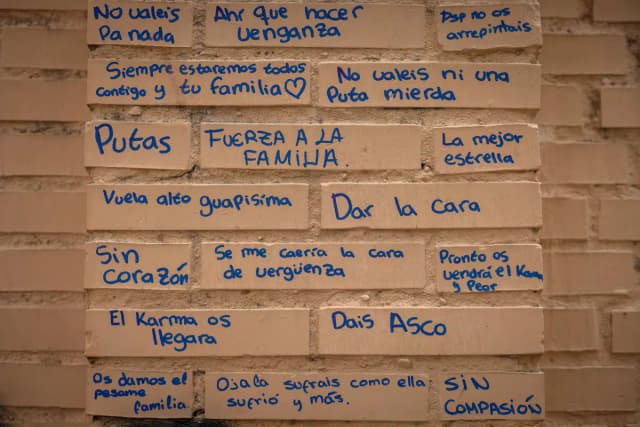 No valeis
Pa nada
Ahr que hacer
venganza
Dsp no os
arrepintais
Siempre estaremos todos
contigo y tu familia♡
No valeis ni una
Puta mierda
Putas
FUERZA A LA
FAMILIA.
La mejor
estrella
Vuela alto guapisima
Dar la cara
Sin
corazón
Se me caería la cara
de vergüenza
Pronto os
vendrá el Karma
y Peor
El Karma os
llegara
Dais Asco
Os damos el
pesame
familia
Ojala sufrais como ella
sufrió y más.
SIN
COMPASIÓN